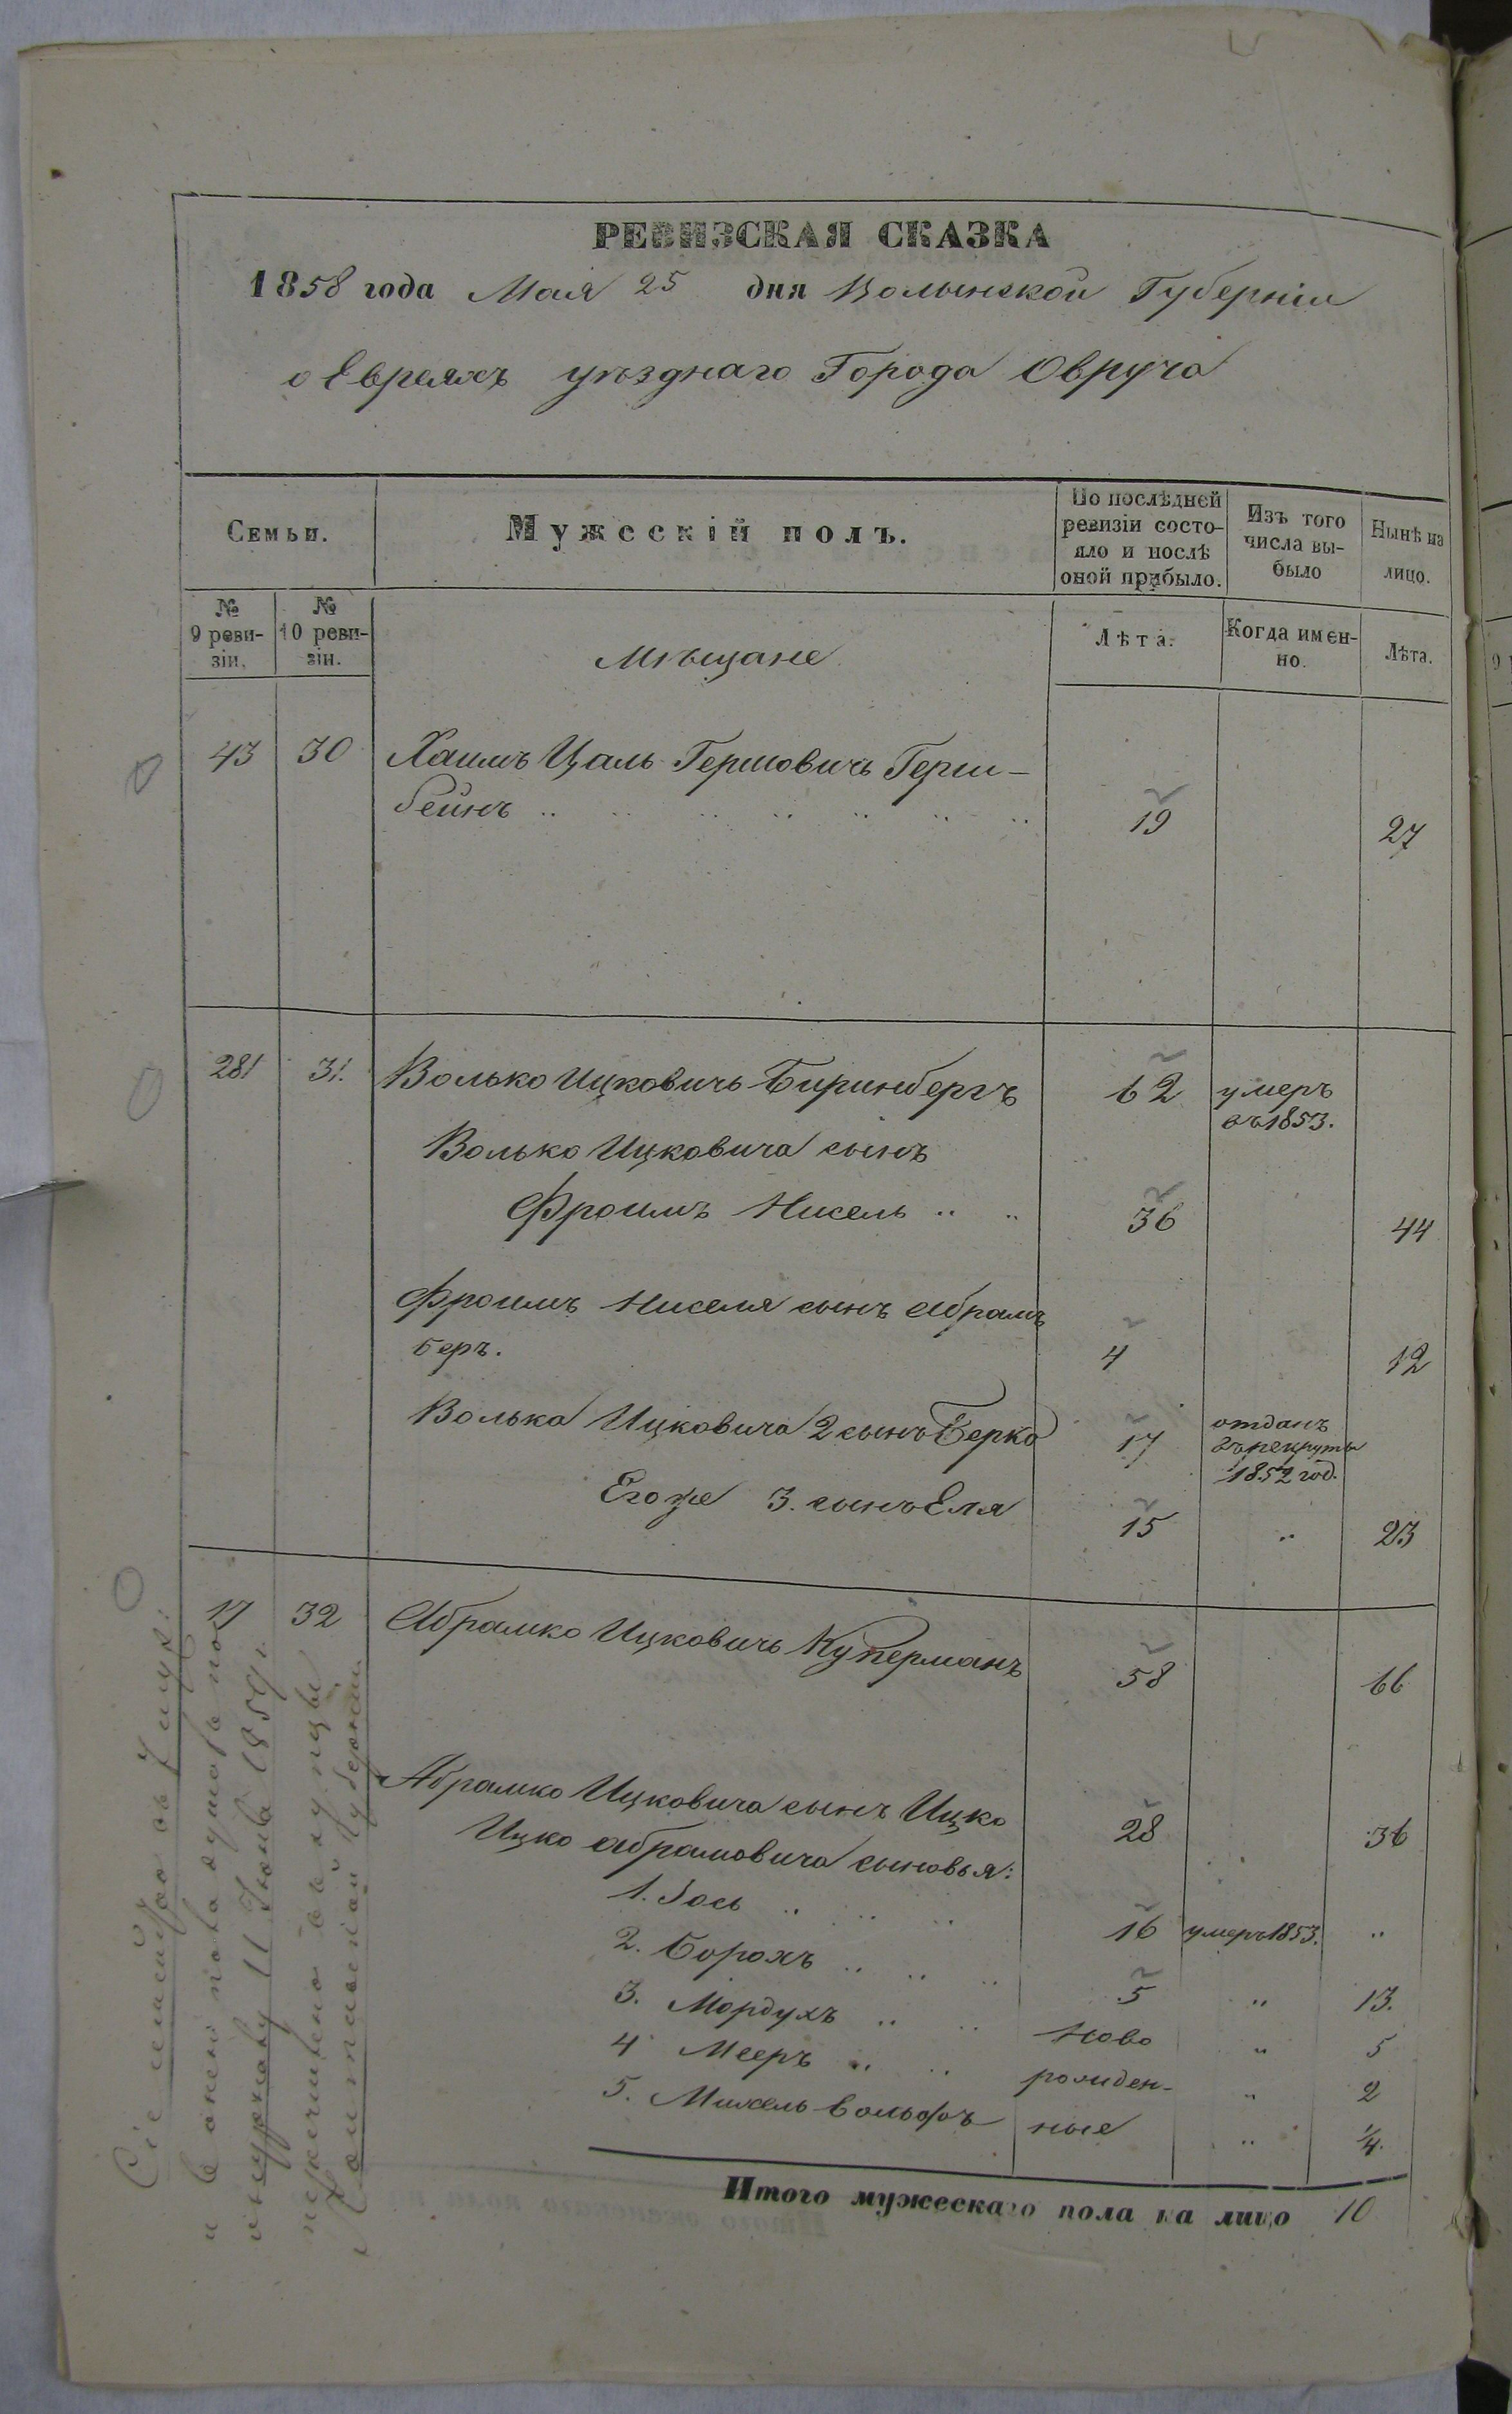 РЕВИЗСКАЯ СКАЗКА
1858 года Мая 25 дня Волынской Губерніи
о Евреяхъ уѣзднаго Города Овруча
Семьи.
Мужескій полъ.
По послѣдней
ревизіи состо-
яло и послѣ
оной прибыло.
Изъ того
числа вы-
было
Нынѣ на
лицо.
№
9 реви-
зіи.
№
10 реви-
зіи.
Мѣщане
Лѣта.
Когда имен-
но.
Лѣта.
43 30 Хаимъ Цаль Гершовичь Герш-
бейнъ 19 27
281 31. Волько Ицковичь Биринбергъ 62 умеръ
въ 1853.
Волько Ицковича сынъ
Фроимъ Нисель 36 44
Фроимъ Ниселя сынъ Абрамъ
Беръ. 4 12
Волька Ицковича 2 сынъ Берко 17 отданъ
въ рекруты
1852 год.
Егоже 3. сынъ Еля 15 23
17 32 Абрамко Ицковичь Куперманъ 58 66
Абрамко Ицковича сынъ Ицко 28 36
Ицко Абрамовича сыновья:
1. Зось 16 умеръ 1853.
2. Борохъ 5 13.
3. Мордухъ Ново 5
4 Мееръ рожден- 2
5. Михель Вольфъ ные 1/4.
Итого мужескаго пола на лицо 10
Сіе семейство съ
11 1859 г.
перечислено въ купцы